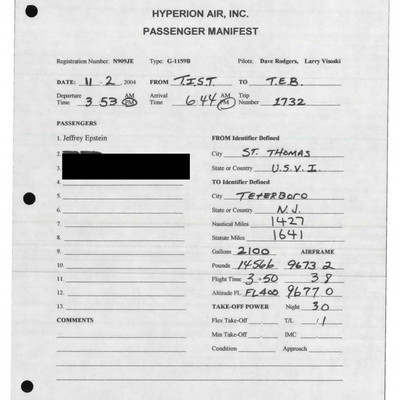 HYPERION AIR, INC.
PASSENGER MANIFEST
Registration Number: N909JE Type: G-1159B Pilots: Dave Rodgers, Larry Visoski
DATE: 11-2 2004 FROM T.I.S.T TO T.E.B.
Departure Time 3 53 AM PM Arrival Time 6 44 AM PM Trip Number 1732
PASSENGERS
1. Jeffrey Epstein
2.
3.
4.
5.
6.
7.
8.
9.
10.
11.
12.
13.
COMMENTS
FROM Identifier Defined
City ST. THOMAS
State or Country U.S.V.I.
TO Identifier Defined
City TETERBORO
State or Country N.J.
Nautical Miles 1427
Statute Miles 1641
Gallons 2100 AIRFRAME
Pounds 14566 9673 2
Flight Time 3+50 3 8
Altitude FL FL400 9677 0
TAKE-OFF POWER Night 3.0
Flex Take-Off T/L 1
Min Take-Off IMC
Condition Approach